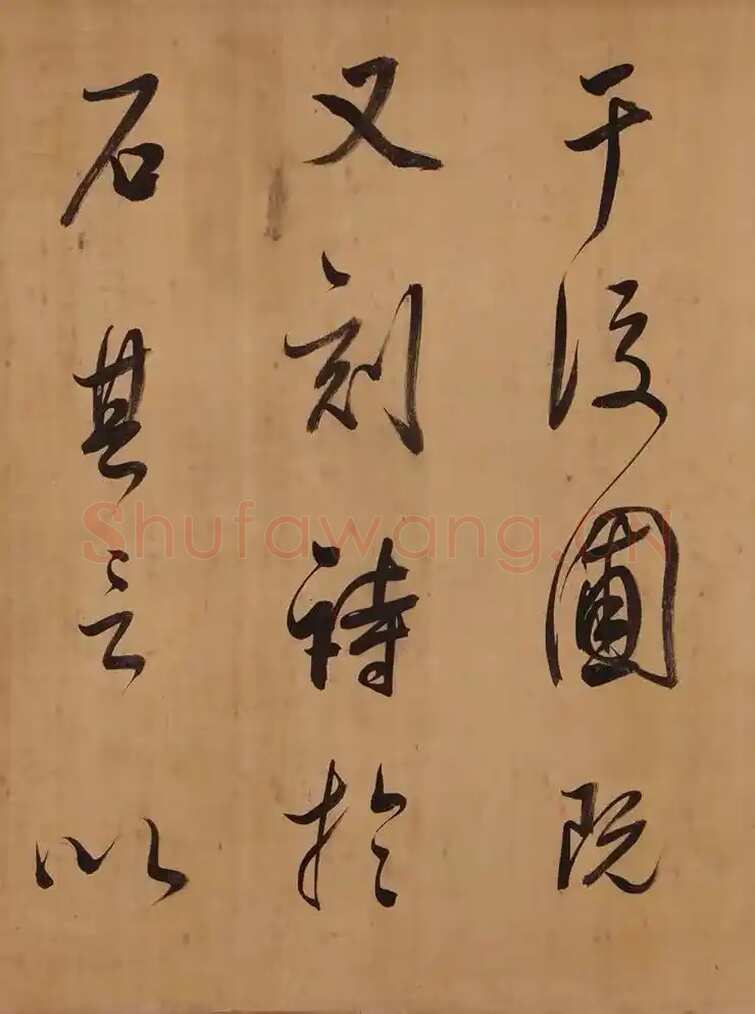 于後圃既
又刻詩於
石其言以
Shufawang.CN